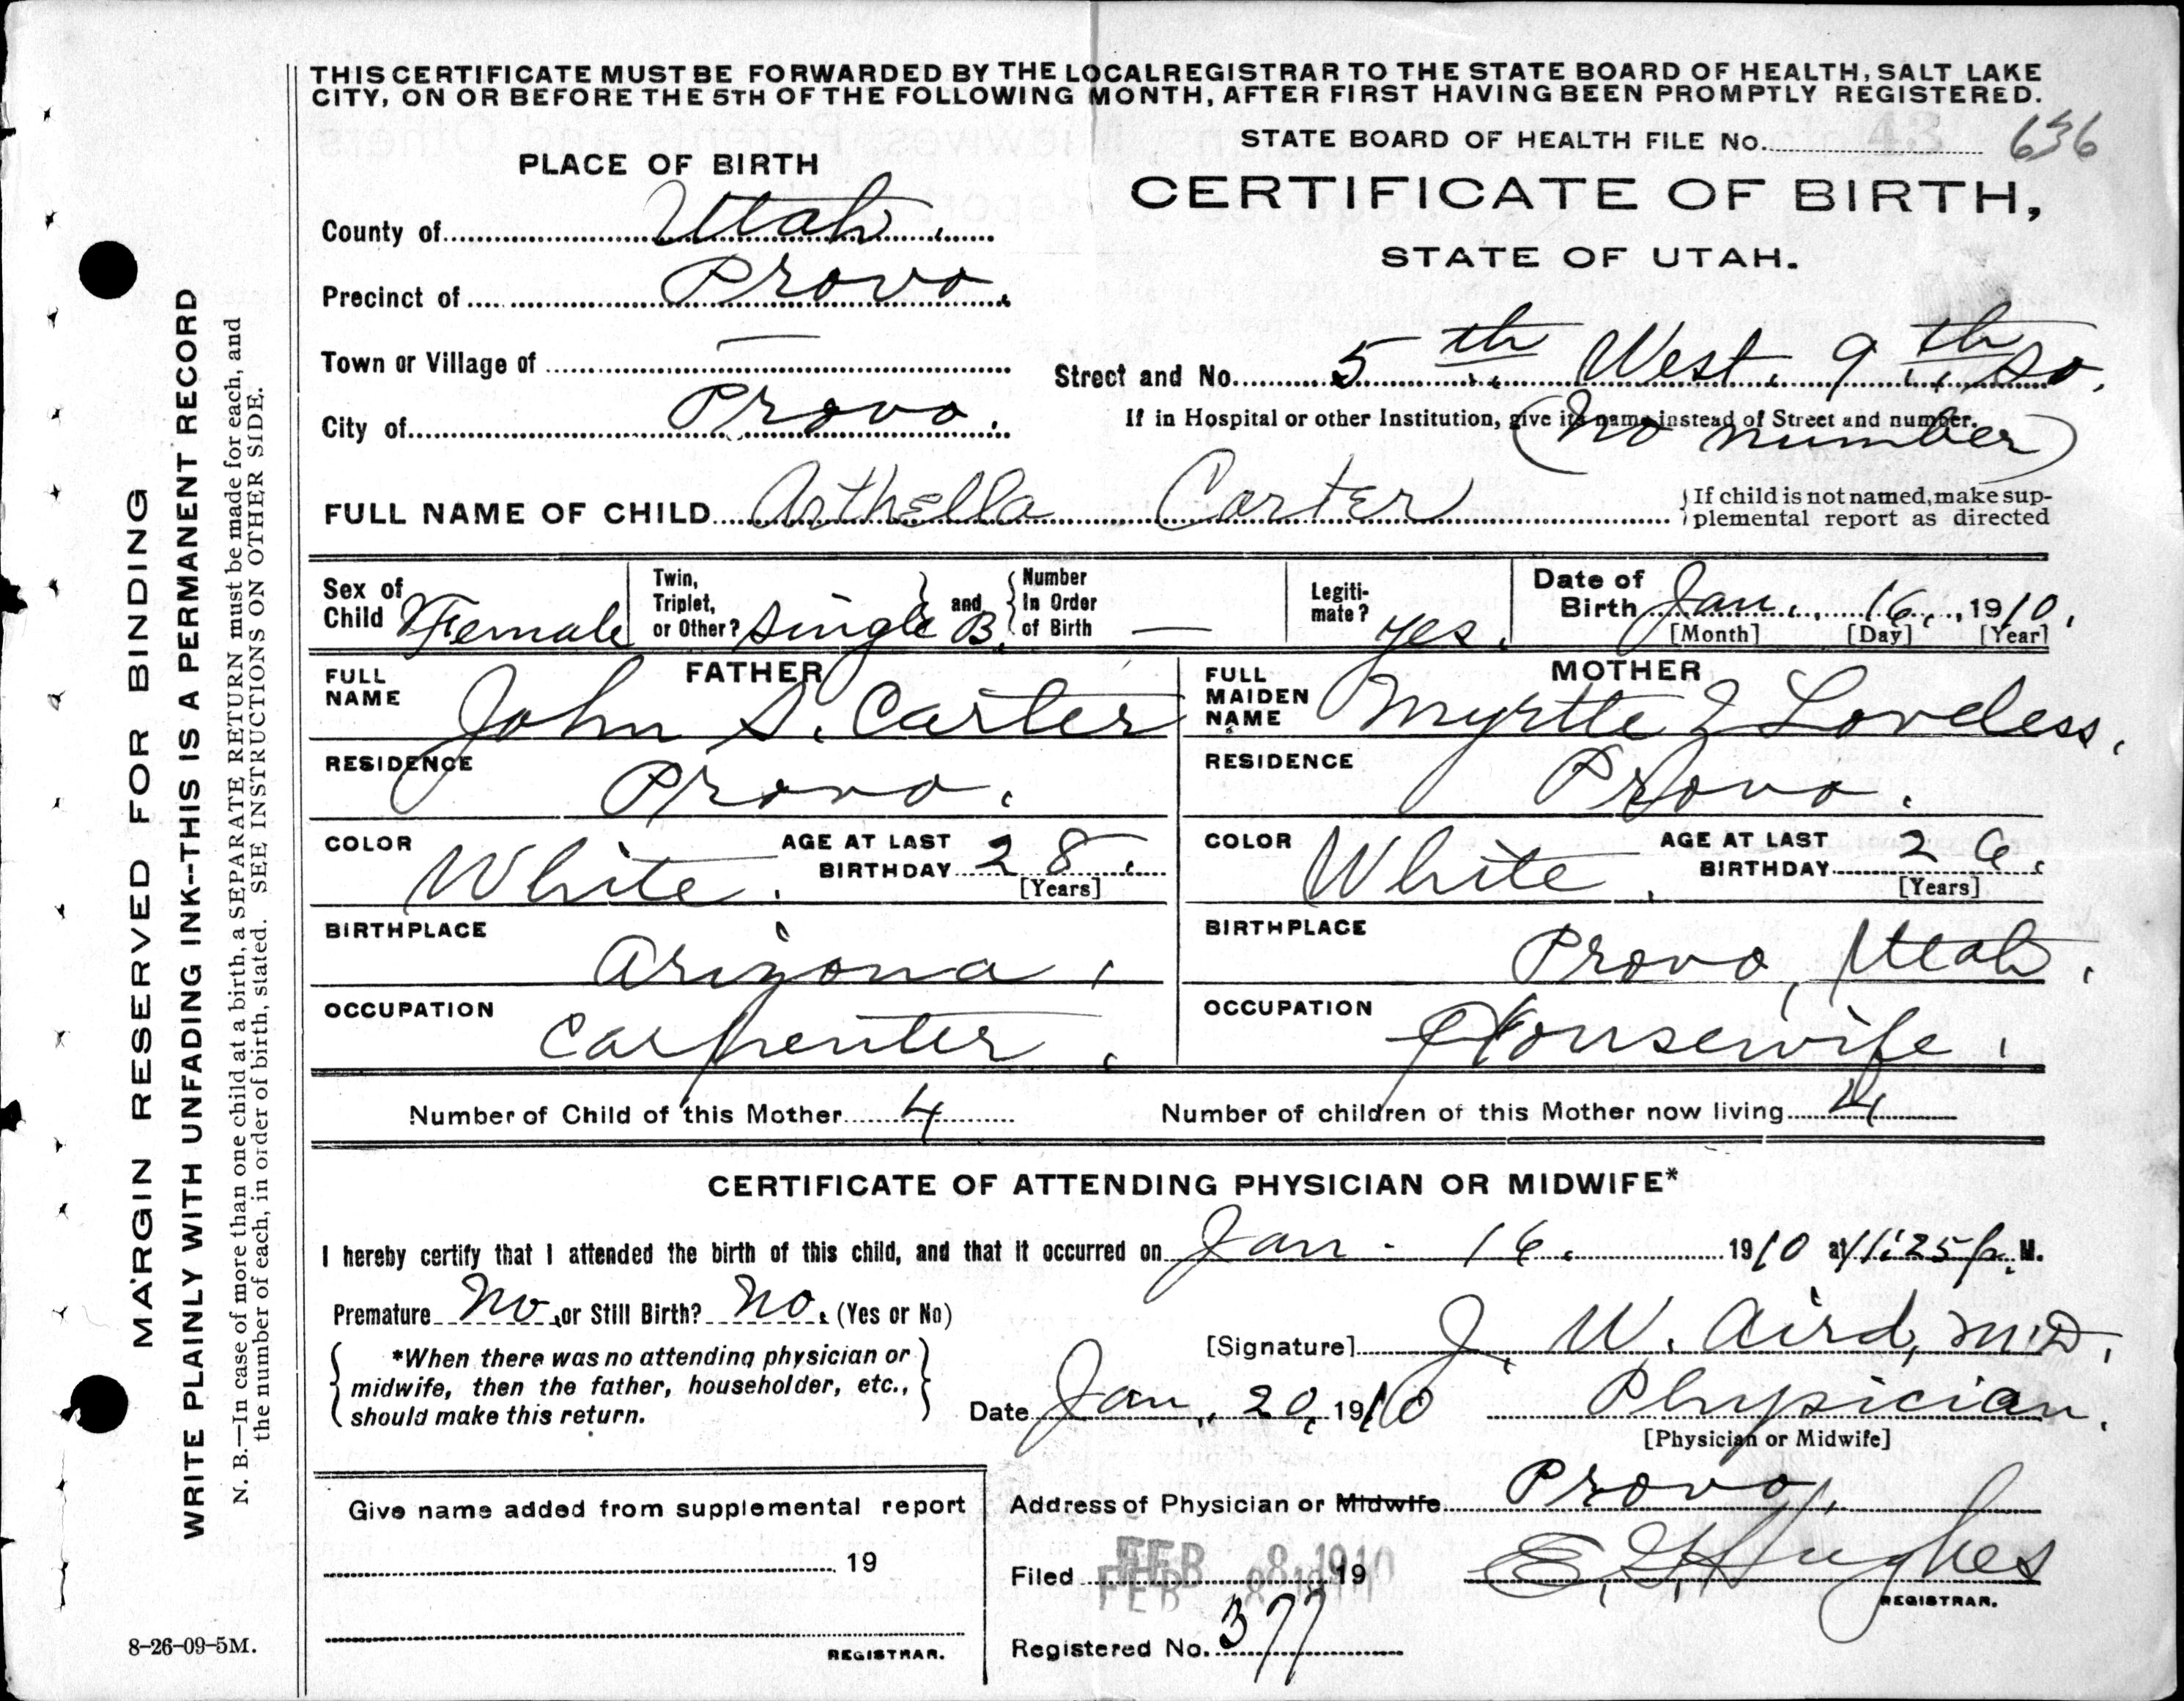 THIS CERTIFICATE MUST BE FORWARDED BY THE LOCAL REGISTRAR TO THE STATE BOARD OF HEALTH, SALT LAKE
CITY, ON OR BEFORE THE 5TH OF THE FOLLOWING MONTH, AFTER FIRST HAVING BEEN PROMPTLY REGISTERED.
STATE BOARD OF HEALTH FILE No. 43 636
PLACE OF BIRTH
CERTIFICATE OF BIRTH,
STATE OF UTAH.
County of Utah.
Precinct of Provo.
Town or Village of —
Street and No. 5th West. 9th So.
City of Provo.
If in Hospital or other Institution, give its name instead of Street and number.
(No number)
FULL NAME OF CHILD Arthella Carter
{If child is not named, make sup-
plemental report as directed
Sex of Child Female
Twin, Triplet, or Other? Single B. and Number In Order of Birth —
Legiti-mate? yes.
Date of Birth Jan. 16, 1910.
[Month] [Day] [Year]
FATHER
FULL NAME John S. Carter
MOTHER
FULL MAIDEN NAME Myrtle I Loveless.
RESIDENCE Provo.
RESIDENCE Provo.
COLOR White. AGE AT LAST BIRTHDAY 28. [Years]
COLOR White. AGE AT LAST BIRTHDAY 26. [Years]
BIRTHPLACE Arizona.
BIRTHPLACE Provo, Utah.
OCCUPATION Carpenter.
OCCUPATION Housewife.
Number of Child of this Mother 4
Number of children of this Mother now living 4
CERTIFICATE OF ATTENDING PHYSICIAN OR MIDWIFE*
I hereby certify that I attended the birth of this child, and that it occurred on Jan. 16. 1910 at 11:25 p. M.
Premature No, or Still Birth? No. (Yes or No)
[Signature] J. W. Aird, M.D.
*When there was no attending physician or
midwife, then the father, householder, etc.,
should make this return.
Date Jan. 20, 1910 Physician.
[Physician or Midwife]
Give name added from supplemental report
19
REGISTRAR.
Address of Physician or Midwife Provo.
Filed FEB 8 1910 19
E. G. Hughes
REGISTRAR.
Registered No. 377
8-26-09-5M.
MARGIN RESERVED FOR BINDING
WRITE PLAINLY WITH UNFADING INK--THIS IS A PERMANENT RECORD
N. B.—In case of more than one child at a birth, a SEPARATE RETURN must be made for each, and
the number of each, in order of birth, stated. SEE INSTRUCTIONS ON OTHER SIDE.